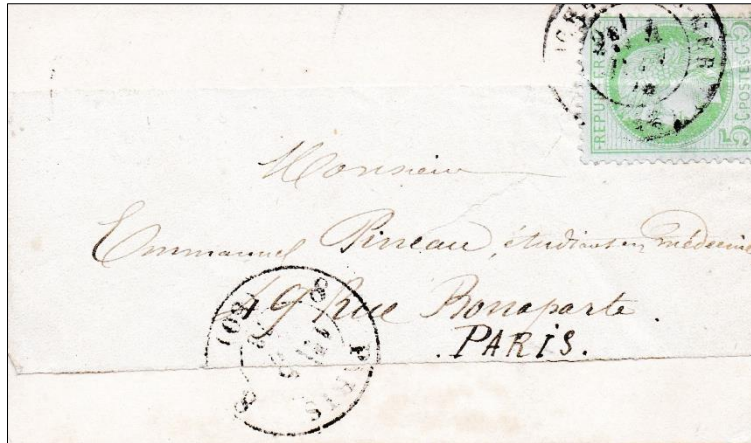 REPUB FRANC
5 C POSTES 5 C
Monsieur
Emmanuel Pineau, étudiant en médecine
49 Rue Bonaparte.
PARIS.
PARIS
8
8
(60)